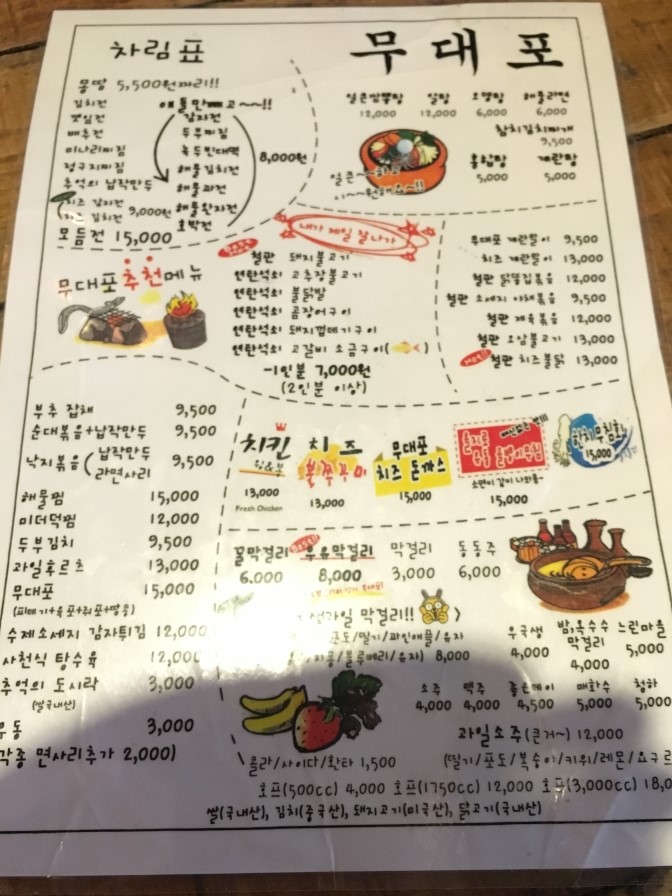 차림표
무대포
몽땅 5,500원짜리!!
김치전
깻잎전
배추전
미나리찌짐
정구지찌짐
추억의 납작만두
치즈 감자전
치즈 김치전 9,000원
모듬전 15,000
감자전
두부찌짐
녹두빈대떡
해물김치전
해물파전
해물완자전
호박전
8,000원
얼큰짬뽕탕 알탕 오뎅탕 해물라면
12,000 12,000 6,000 6,000
참치김치찌개
9,500
홍합탕 계란탕
5,000 5,000
얼큰~하고
시~원해요~!!
내가 제일 잘 나가
무대포 추천메뉴
철판 돼지불고기
연탄석쇠 고추장불고기
연탄석쇠 불닭발
연탄석쇠 곰장어구이
연탄석쇠 돼지껍데기구이
연탄석쇠 고갈비 소금구이( )
-1인분 7,000원
(2인분 이상)
무대포 계란말이 9,500
치즈 계란말이 13,000
철판 닭똥집볶음 12,000
철판 소세지 야채볶음 9,500
철판 제육볶음 12,000
철판 오삼불고기 13,000
HOT!! 철판 치즈불닭 13,000
부추 잡채 9,500
순대볶음+납작만두 9,500
낙지볶음 ( 납작만두 라면사리 9,500
해물찜 15,000
미더덕찜 12,000
두부김치 9,500
과일후르츠 13,000
무대포 15,000
(피데기+육포+쥐포+땅콩)
수제소세지 감자튀김 12,000
사천식 탕수육 12,000
추억의 도시락 3,000
(쌀국내산)
우동 3,000
각종 면사리추가 2,000)
치킨
13,000
Fresh Chicken
치즈
불쭈꾸미
13,000
무대포
치즈 돈까스
15,000
소면이 같이 나와욤~
15,000
한치무침회
15,000
꿀막걸리 우유막걸리 막걸리 동동주
6.000 8,000 3,000 6,000
생과일 막걸리!!
포도/딸기/파인애플/유자
자몽/블루베리/유자) 8,000
우국생
4,000
밤,옥수수
막걸리
4,000
느린마을
5,000
소주 맥주 좋은데이 매화수 청하
4,000 4,000 4,500 5,000 5,000
과일소주(큰거~) 12,000
(딸기/포도/복숭아/키위/레몬/요구르
콜라/사이다/환타 1,500
호프(500cc) 4,000 호프(1750cc) 12,000 호프(3,000cc) 18,0
쌀(국내산), 김치(중국산), 돼지고기(미국산), 닭고기(국내산)